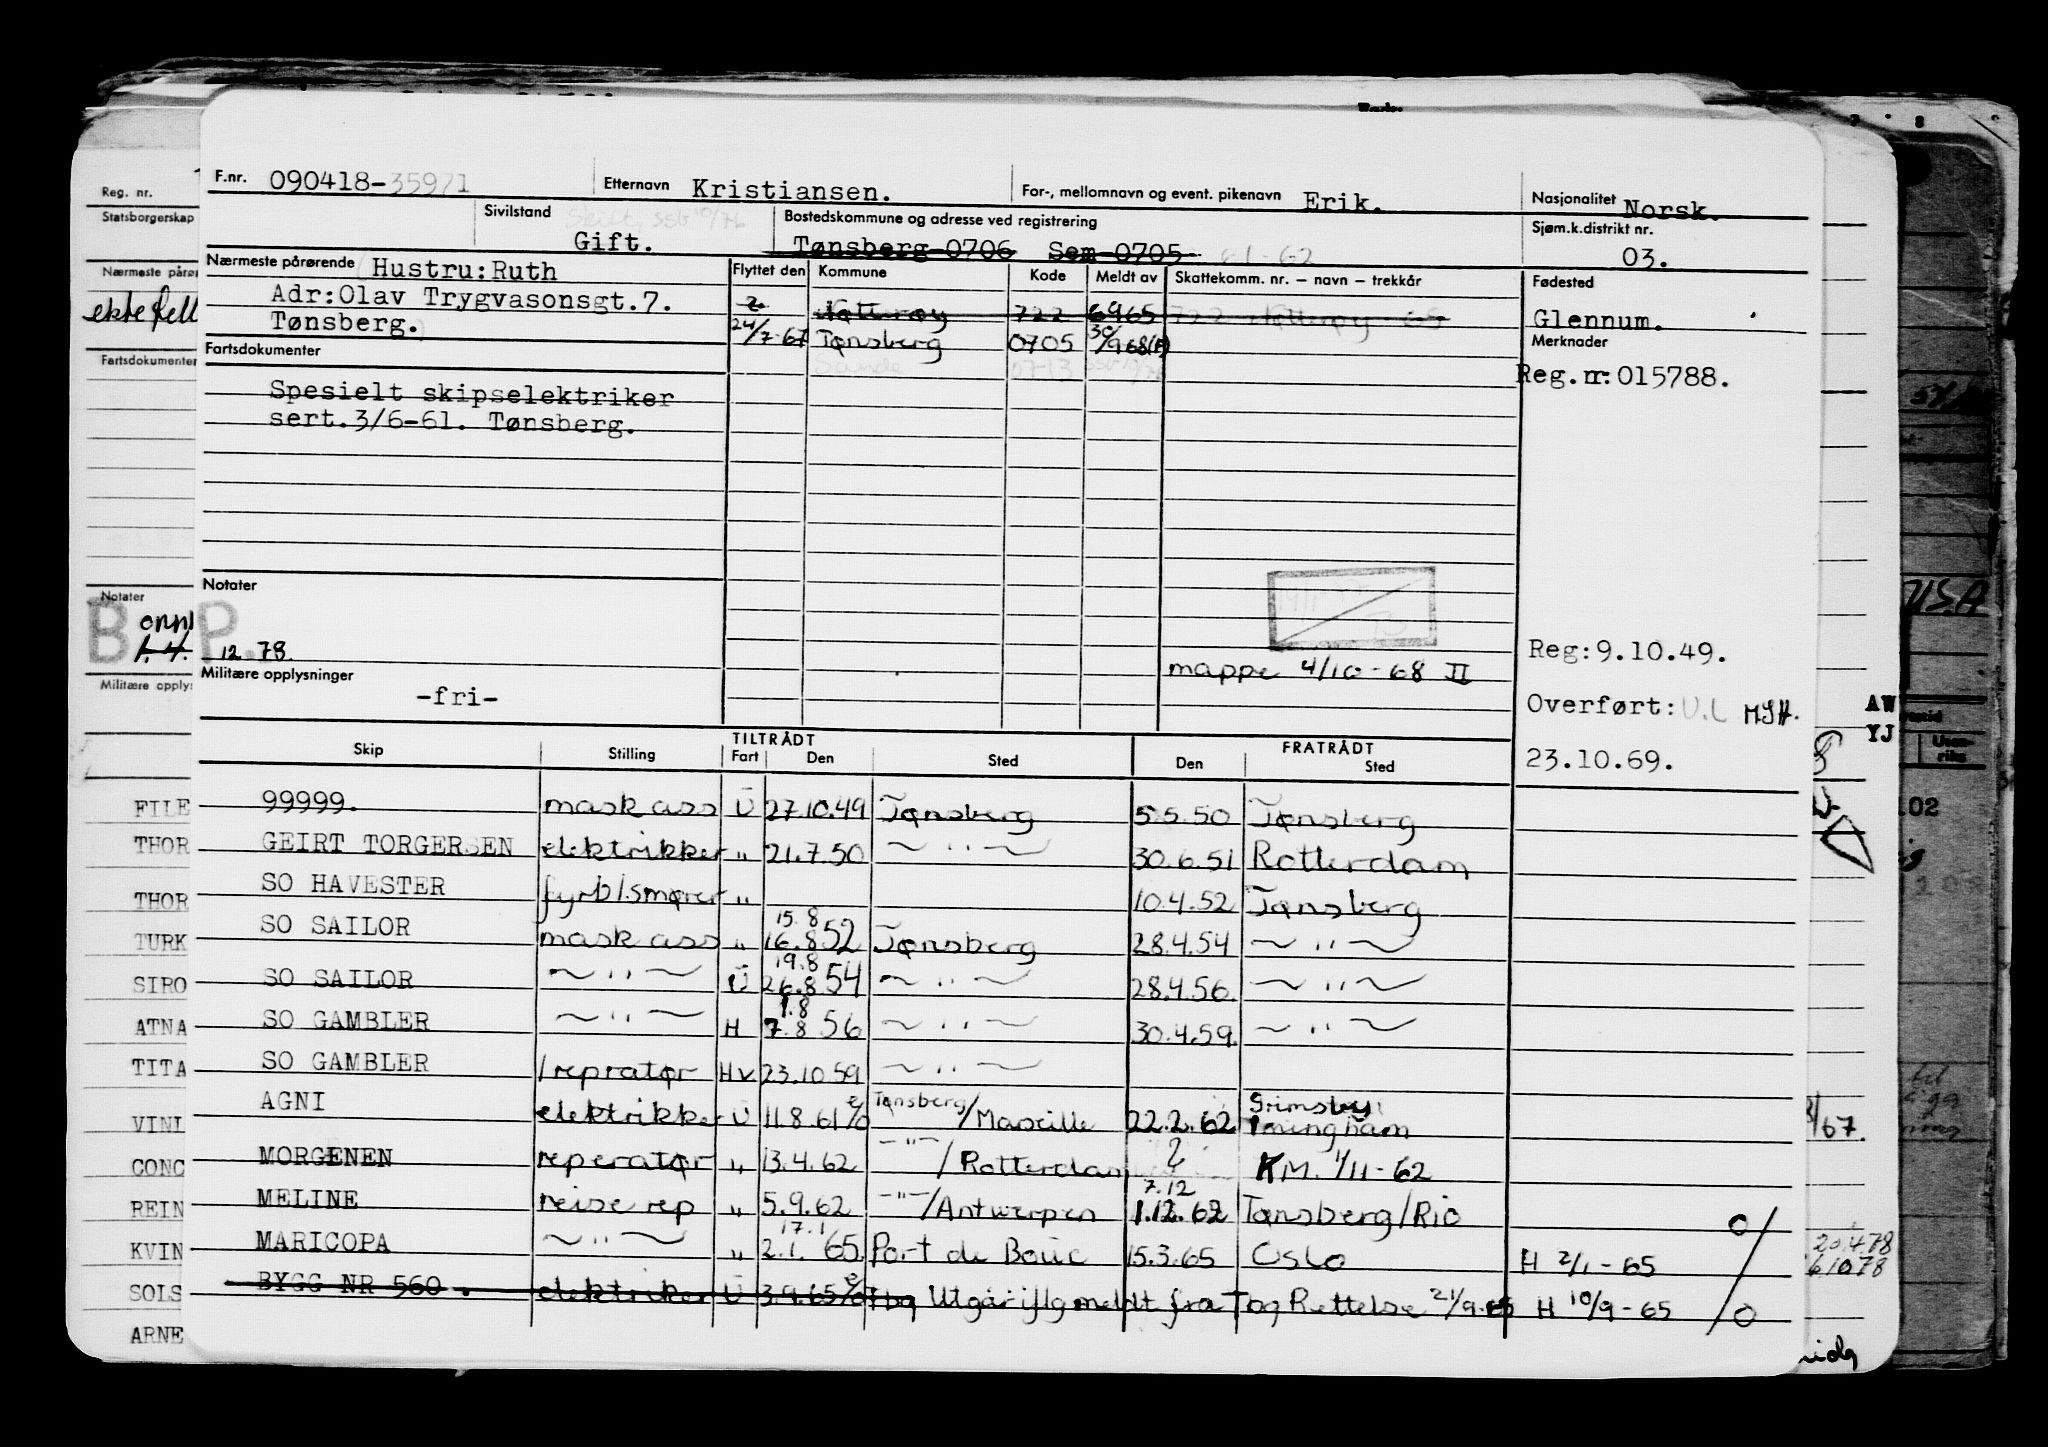 F.nr. 090418-35971 Etternavn Kristiansen. For-, mellomnavn og event. pikenavn Erik. Nasjonalitet Norsk.
Sivilstand Gift. Bostedskommune og adresse ved registrering Sjøm.k.distrikt nr. 03.
Tønsberg 0706 Sem 0705 61-62
Nærmeste pårørende Hustru: Ruth Flyttet den Kommune Kode Meldt av Skattekomm. nr. – navn – trekkår Fødested
Adr: Olav Trygvasonsgt. 7. 2 Nøtterøy 722 6965 722 Nøtterøy 65 Glennum.
Tønsberg. 24/7-67 Tønsberg 0705 30/968(A) Merknader
Fartsdokumenter Sande 0713 Reg.nr:015788.
Spesielt skipselektriker
sert.3/6-61. Tønsberg.
Notater
12.78.
mappe 4/10-68 II
Reg:9.10.49.
Militære opplysninger
-fri-
Overført: U.L MSH.
23.10.69.
TILTRÅDT FRATRÅDT
Skip Stilling Fart Den Sted Den Sted
99999. mask ass U 27.10.49 Tønsberg 5.5.50 Tønsberg
GEIRT TORGERSEN elektrikker " 21.7.50 ~ " ~ 30.6.51 Rotterdam
SO HAVESTER fyrb/smører " 10.4.52 Tønsberg
SO SAILOR mask ass " 15.8 16.8 52 Tønsberg 28.4.54 ~ " ~
SO SAILOR ~ " ~ U 19.8 26.8 54 ~ " ~ 28.4.56. ~ " ~
SO GAMBLER ~ " ~ H 1.8 7.8 56 ~ " ~ 30.4.59. ~ " ~
SO GAMBLER /repratør Hv 23.10.59 ~ " ~
AGNI elektrikker U 11.8.61 Tønsberg/Maseille 22.2.62 Grimsby
Imingham
MORGENEN reperatør " 13.4.62 -"-/Rotterdam ? KM. 1/11-62
MELINE reise rep " 5.9.62 -"-/Antwerpen 7.12 1.12.62 Tønsberg/Rio 0/
MARICOPA ~ " ~ " 17.1 2.1. 65. Port de Bouc 15.3.65 Oslo H 2/1-65
BYGG NR 560. elektriker U 3.9.65 Tbg Utgår iflg meldt fra Tbg Rettelse 21/9-65 H 10/9-65 /0
Reg. nr.
Statsborgerskap
Nærmeste pårør
Fartsdokumenter
Notater
B P.
Militære opply
FILE
THOR
THOR
TURK
SIRO
ATNA
TITA
VINL
CONC
REIN
KVIN
SOLS
ARNE
U.S.A
AW
YJ
/67.
20.4.78